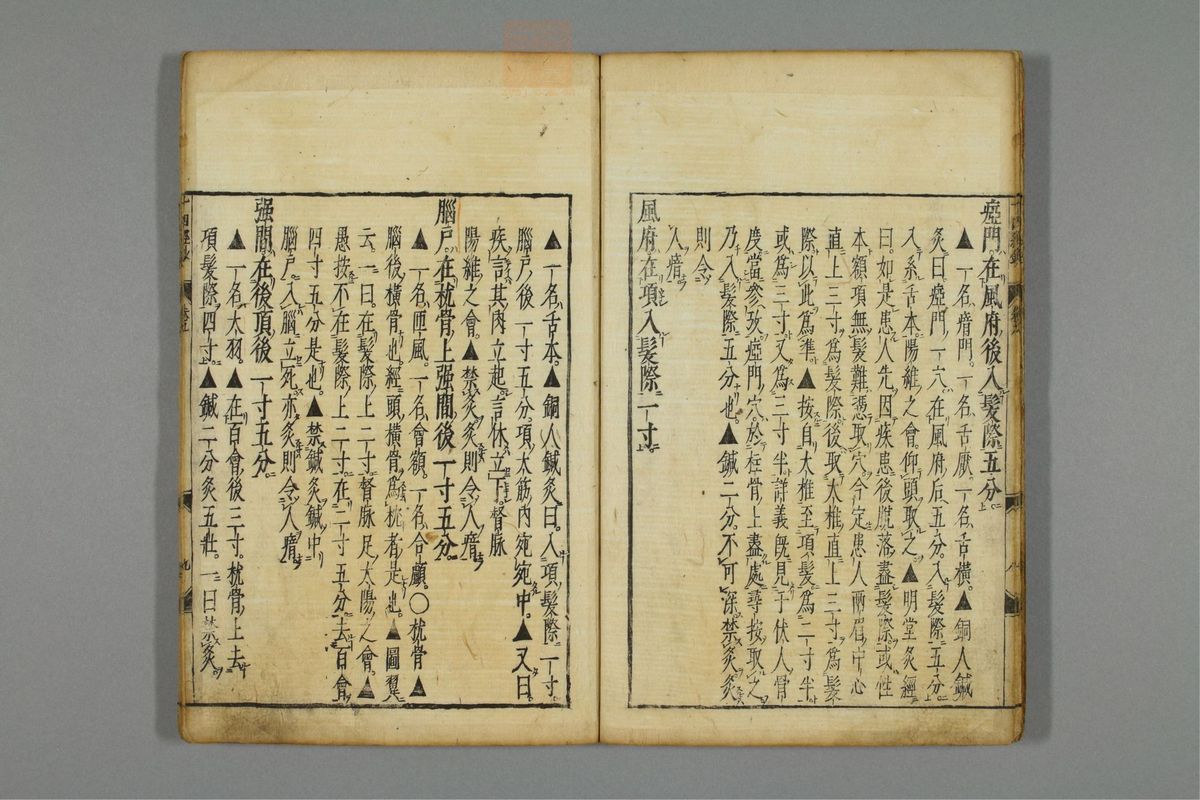 瘂門在風府後入髮際五分
▲一名瘖門一名舌厭一名舌橫▲銅人鍼
灸曰瘂門一穴在風府后五分入髮際五分
入系舌本陽維之會仰頭取之▲明堂灸經
曰如是患人先因疾患後脫落盡髮際或性
本額項無髮難憑取穴今定患人兩眉中心
直上三寸爲髮際後取大椎直上三寸爲髮
際以此爲準▲按自大椎至項髮爲二寸半
或爲三寸又爲三寸半詳義旣見于伏人骨
度當參攷瘂門穴於柱骨上盡處尋按取之
乃入髮際五分也▲鍼二分不可深禁灸灸
則令
人瘖
風府在項入髮際一寸
▲一名舌本▲銅人鍼灸曰入項髮際一寸
腦戶後一寸五分項大筋內宛宛中▲又曰
疾言其肉立起言休立下督脉
陽維之會▲禁灸灸則令人瘖
腦戶在枕骨上强間後一寸五分
▲一名匝風一名會額一名合顱○枕骨▲
腦後橫骨也經頭橫骨爲枕者是也▲圖翼
云一曰在髮際上二寸督脉足太陽之會▲
愚按不在髮際上二寸在二寸五分去百會
四寸五分是也▲禁鍼灸鍼中
腦戶入腦立死亦灸則令人瘖
强間在後頂後一寸五分
▲一名大羽▲在百會後三寸枕骨上去
項髮際四寸▲鍼二分灸五壯一曰禁灸